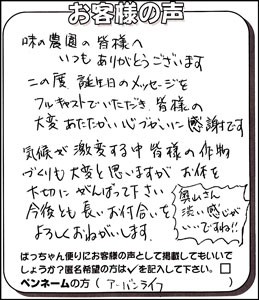 お客様の声
味の農園の皆様へ
いつもありがとうございます
この度 誕生日のメッセージを
フルキャストでいただき、皆様の
大変あたたかい心づかいに感謝です
気候が激変する中皆様の作物
づくりも大変と思いますが お体を
大切にがんばって下さい
今後とも長いお付合いを
よろしくおねがいします。
奥山さん
渋い感じが
いいですね!!
ばっちゃん便りにお客様の声として掲載してもいいで
しょうか?匿名希望の方は✓を記入して下さい。□
ペンネームの方(アーバンライフ)